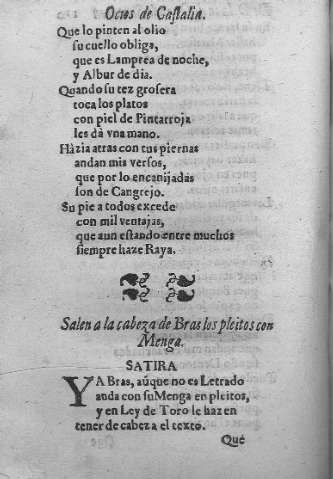 Ocios de Castalia.
Que lo pinten al olio
su cuello obliga,
que es Lamprea de noche,
y Albur de dia.
Quando su tez grosera
toca los platos
con piel de Pintarroja
les dà vna mano.
Hàzia atras con tus piernas
andan mis versos,
que por lo encanijadas
son de Cangrejo.
Su pie a todos excede
con mil ventajas,
que aun estando entre muchos
siempre haze Raya.
Salen a la cabeza de Bras los pleitos con
Menga.
SATIRA
YA Bras, aũque no es Letrado
anda con su Menga en pleitos,
y en Ley de Toro le hazen
tener de cabeza el texto.
Què